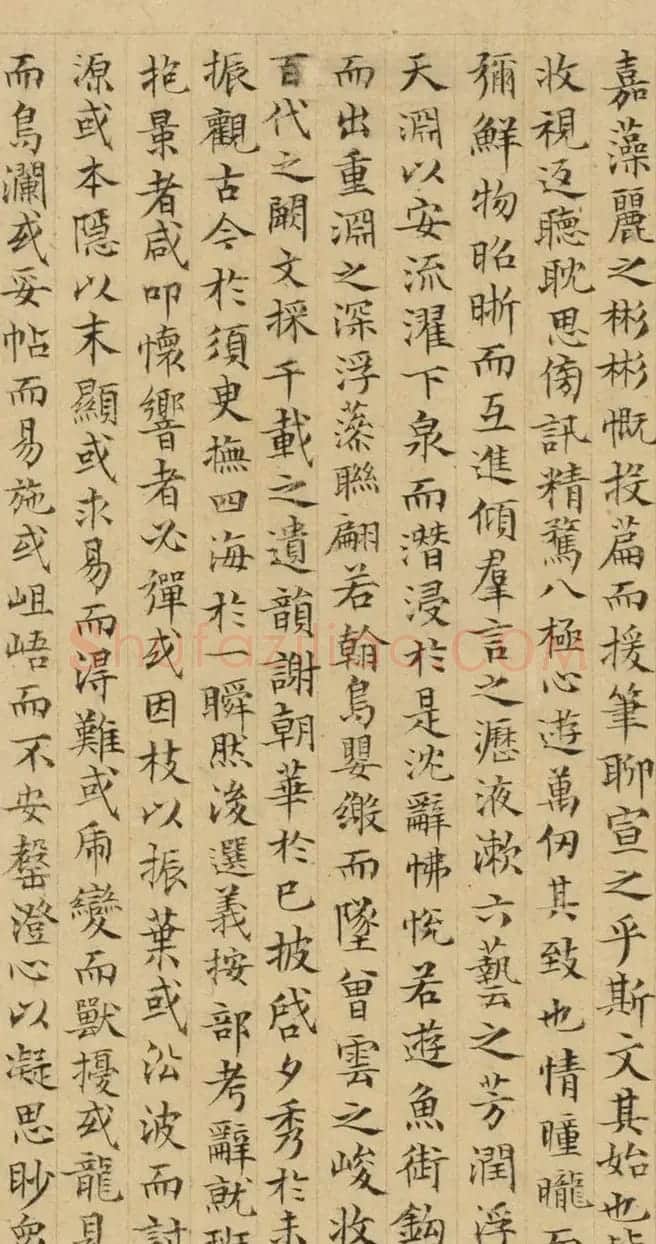 嘉藻麗之彬彬慨投篇而援筆聊宣之乎斯文其始也皆
收視返聽耽思傍訊精騖八極心遊萬仞其致也情曈曨而
彌鮮物昭晣而互進傾羣言之瀝液漱六藝之芳潤浮
天淵以安流濯下泉而潛浸於是沈辭怫悅若遊魚銜鈎
而出重淵之深浮藻聯翩若翰鳥嬰繳而墜曾雲之峻收
百代之闕文採千載之遺韻謝朝華於已披啓夕秀於未
振觀古今於須臾撫四海於一瞬然後選義按部考辭就班
抱景者咸叩懷響者必彈或因枝以振葉或沿波而討
源或本隱以末顯或求易而得難或虎變而獸擾或龍見
而鳥瀾或妥帖而易施或岨峿而不安罄澄心以凝思眇衆